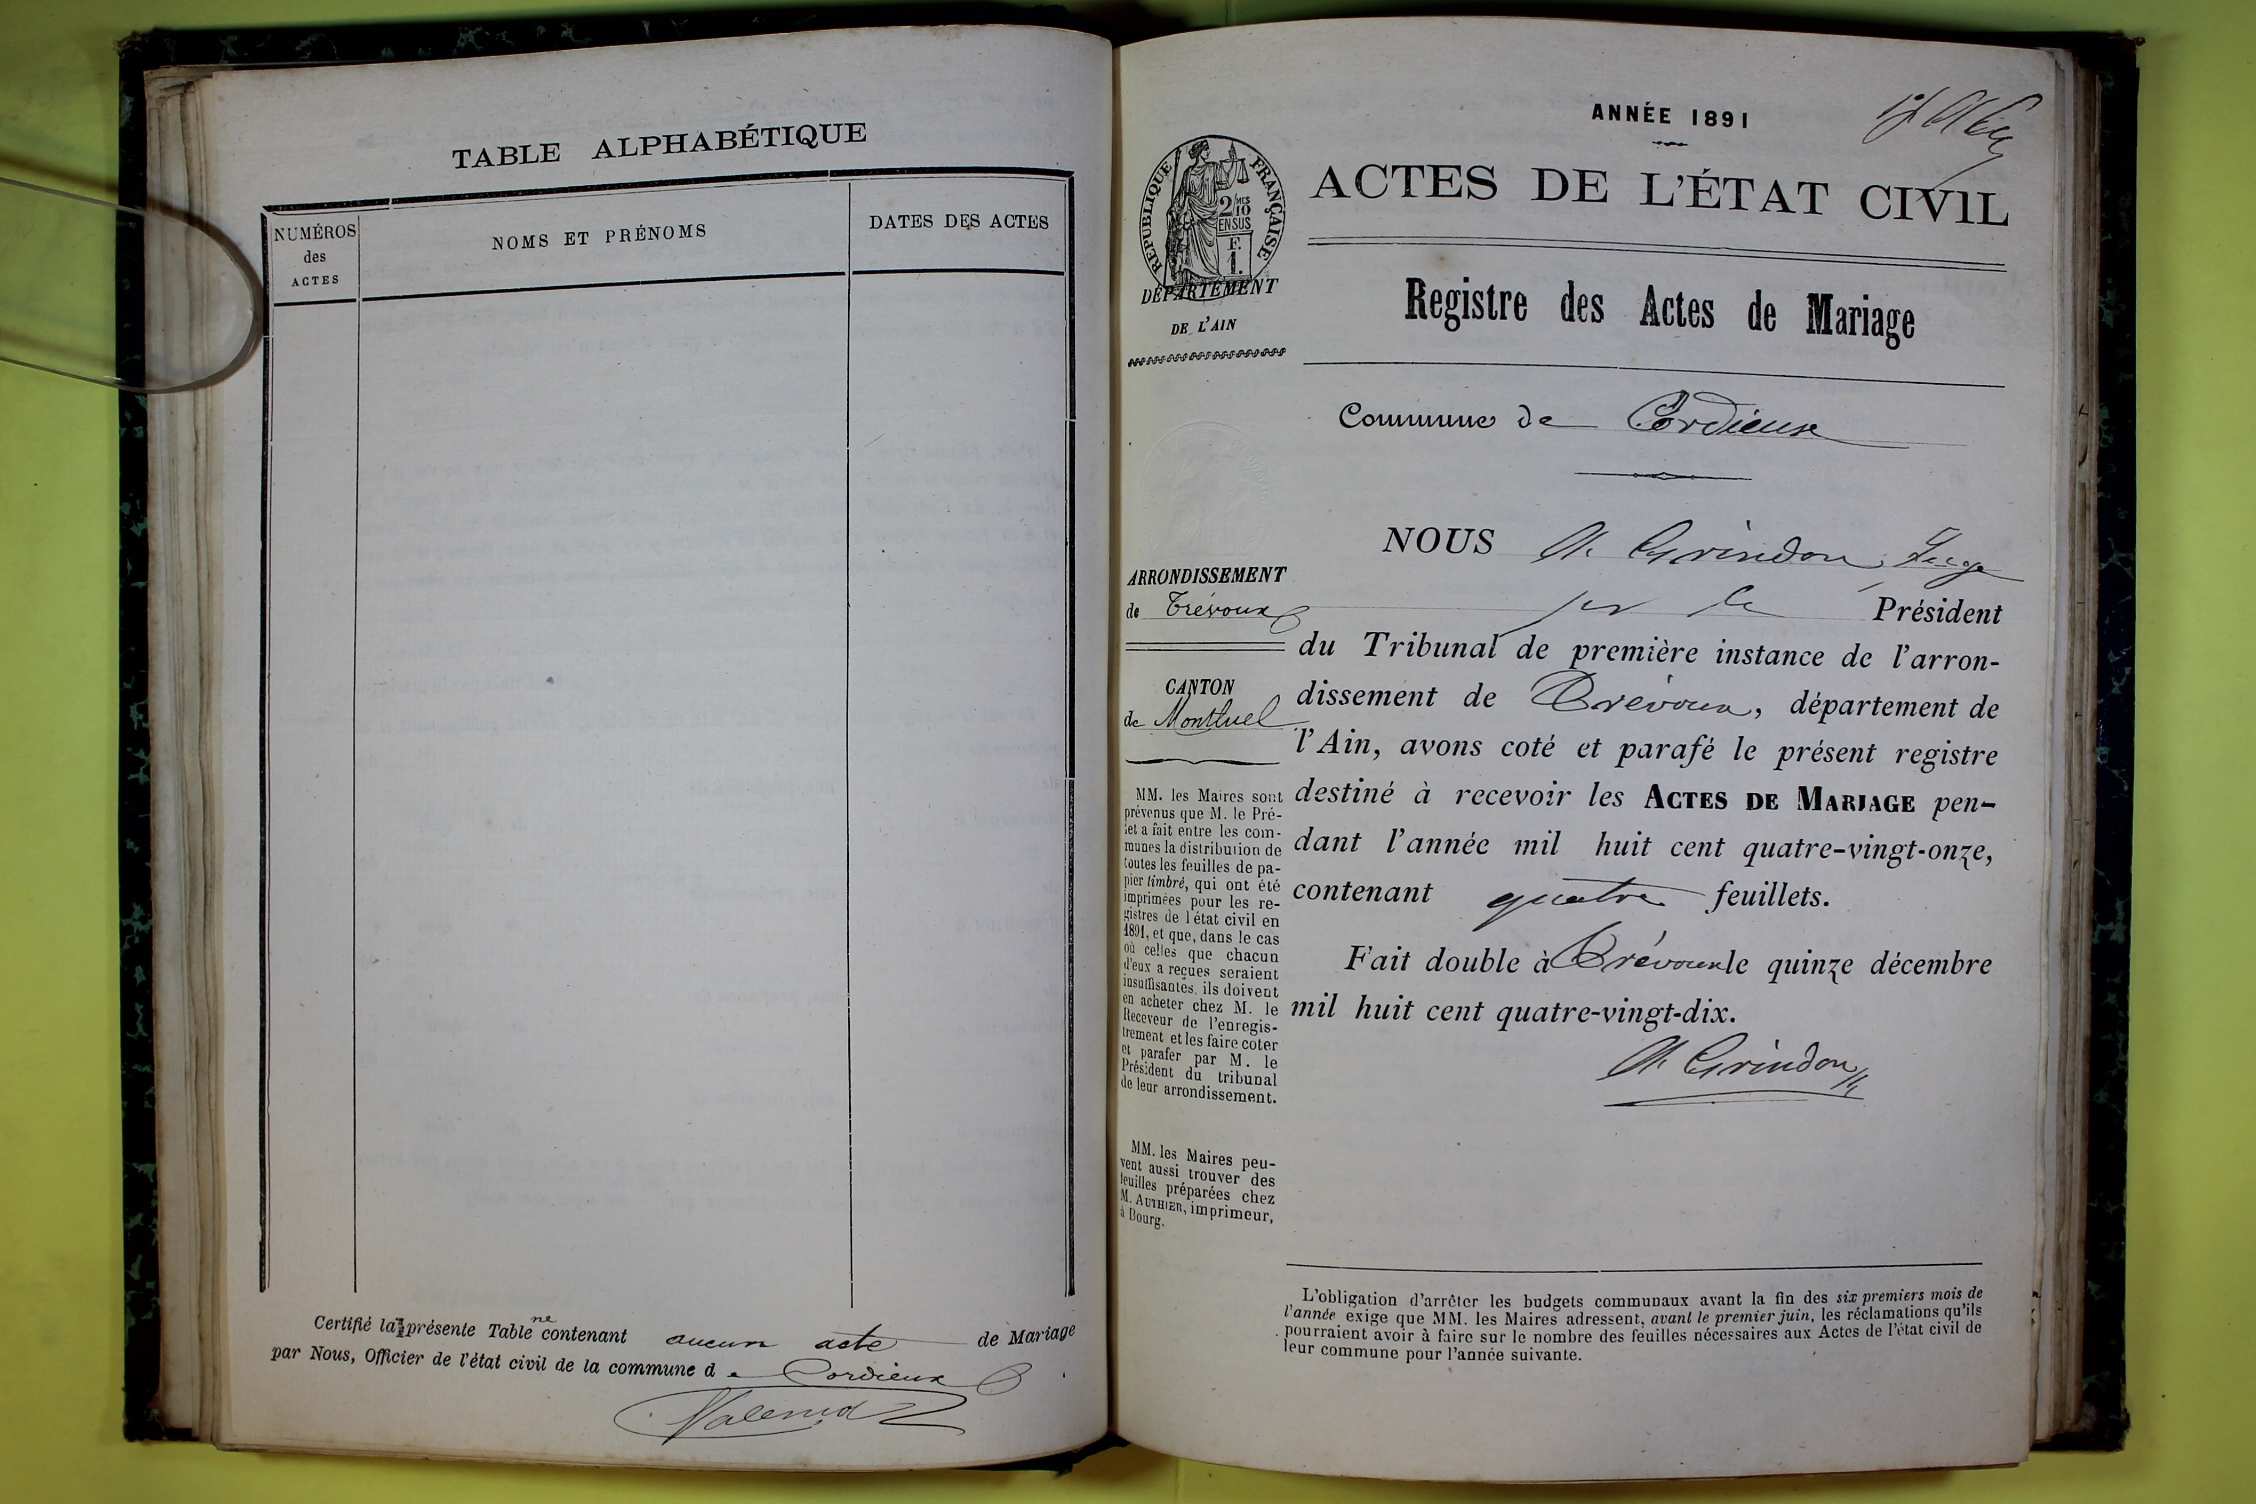 TABLE ALPHABÉTIQUE
NUMÉROS
des
ACTES
NOMS ET PRÉNOMS
DATES DES ACTES
Certifié la présente Table ne contenant aucun acte de Mariage
par Nous, Officier de l'état civil de la commune de Cordieux
ANNÉE 1891
ACTES DE L'ÉTAT CIVIL
RÉPUBLIQUE FRANÇAISE
2/10 MES
EN SUS
F.
1.
DÉPARTEMENT
DE L'AIN
Registre des Actes de Mariage
Commune de Cordieux
ARRONDISSEMENT
de Trévoux
CANTON
de Montluel
MM. les Maires sont
prévenus que M. le Pré-
fet a fait entre les com-
munes la distribution de
toutes les feuilles de pa-
pier timbré, qui ont été
imprimées pour les re-
gistres de l'état civil en
1891, et que, dans le cas
où celles que chacun
d'eux a reçues seraient
insuffisantes, ils doivent
en acheter chez M. le
Receveur de l'enregis-
trement et les faire coter
et parafer par M. le
Président du tribunal
de leur arrondissement.
MM. les Maires peu-
vent aussi trouver des
feuilles préparées chez
M. AUTHIER, imprimeur,
à Bourg.
NOUS Ch. Grindon, Juge
pr le Président
du Tribunal de première instance de l'arron-
dissement de Trévoux, département de
l'Ain, avons coté et parafé le présent registre
destiné à recevoir les ACTES DE MARIAGE pen-
dant l'année mil huit cent quatre-vingt-onze,
contenant quatre feuillets.
Fait double à Trévoux le quinze décembre
mil huit cent quatre-vingt-dix.
Ch. Grindon
L'obligation d'arrêter les budgets communaux avant la fin des six premiers mois de
l'année exige que MM. les Maires adressent, avant le premier juin, les réclamations qu'ils
pourraient avoir à faire sur le nombre des feuilles nécessaires aux Actes de l'état civil de
leur commune pour l'année suivante.